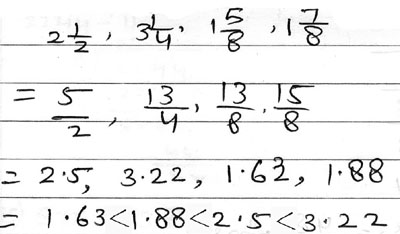 2 1/2, 3 1/4, 1 5/8, 1 7/8
= 5/2, 13/4, 13/8, 15/8
= 2.5, 3.22, 1.63, 1.88
= 1.63<1.88<2.5<3.22